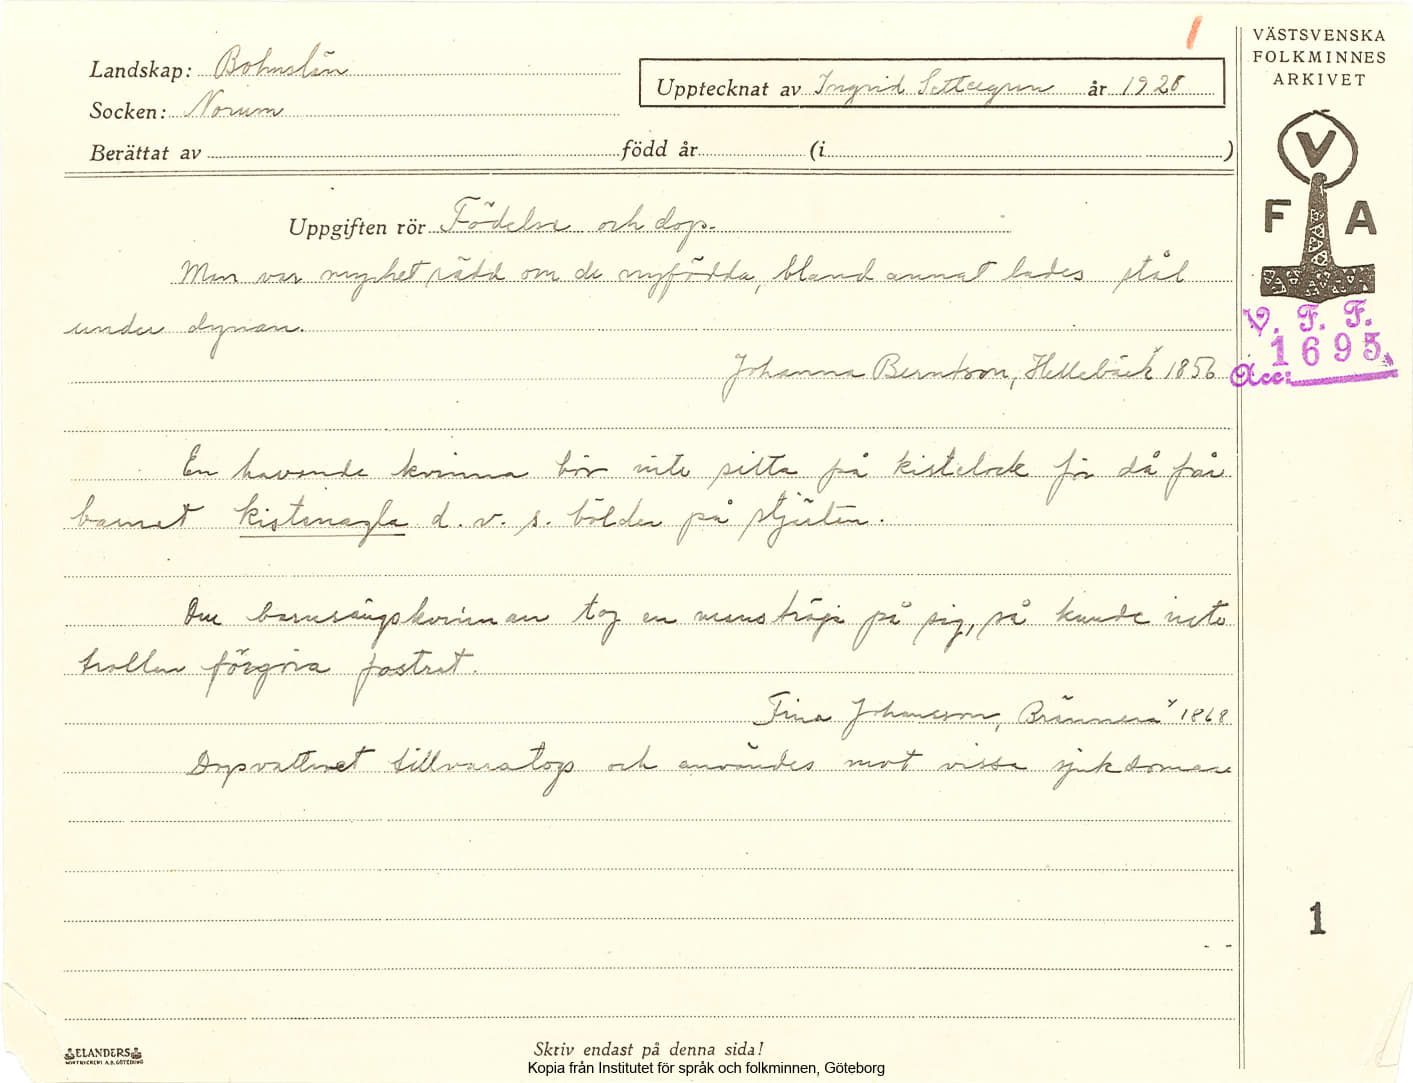 Landskap: Bohuslän
Socken: Norum
Upptecknat av Ingrid Settergren år 1928
Berättat av född år (i )
VÄSTSVENSKA
FOLKMINNES
ARKIVET
V
F A
V. F. F.
1695
Acc:
1
Uppgiften rör Födelse och dop.
Man var mycket rädd om de nyfödda, bland annat lades stål
under dynan.
Johanna Berntson, Hellebäck 1856
En havande kvinna bör inte sitta på kistelock för då får
barnet kistenagla d. v. s. bölder på stjärten.
Om barnsängskvinnan tog en manströja på sig, så kunde inte
trollen förgöra fostret.
Fina Johansson, Brännera 1868
Dopvattnet tillvaratogs och användes mot vissa sjukdomar
1
ELANDERS
BOKTRYCKERI A.B. GÖTEBORG
Skriv endast på denna sida!
Kopia från Institutet för språk och folkminnen, Göteborg